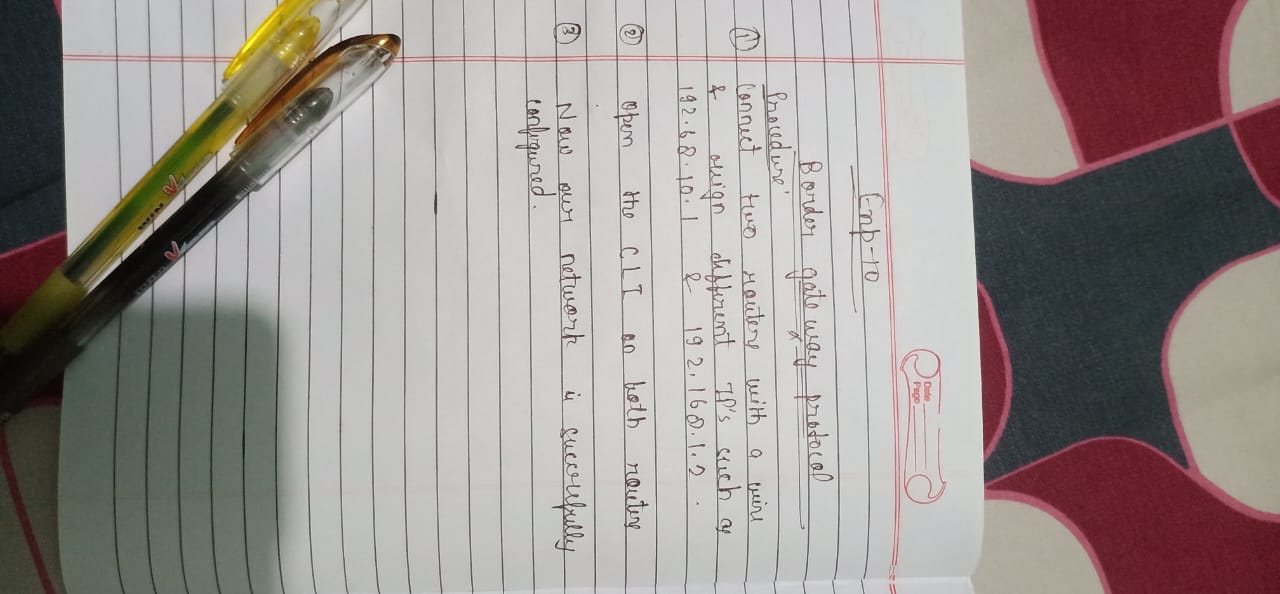 Date
Page
Exp-10
Border gateway protocol
Procedure:
① Connect two routers with a wire
& assign different IP's such as
192.68.10.1 & 192.168.1.2.
② open the CLI on both routers
③ Now our network is successfully
configured.